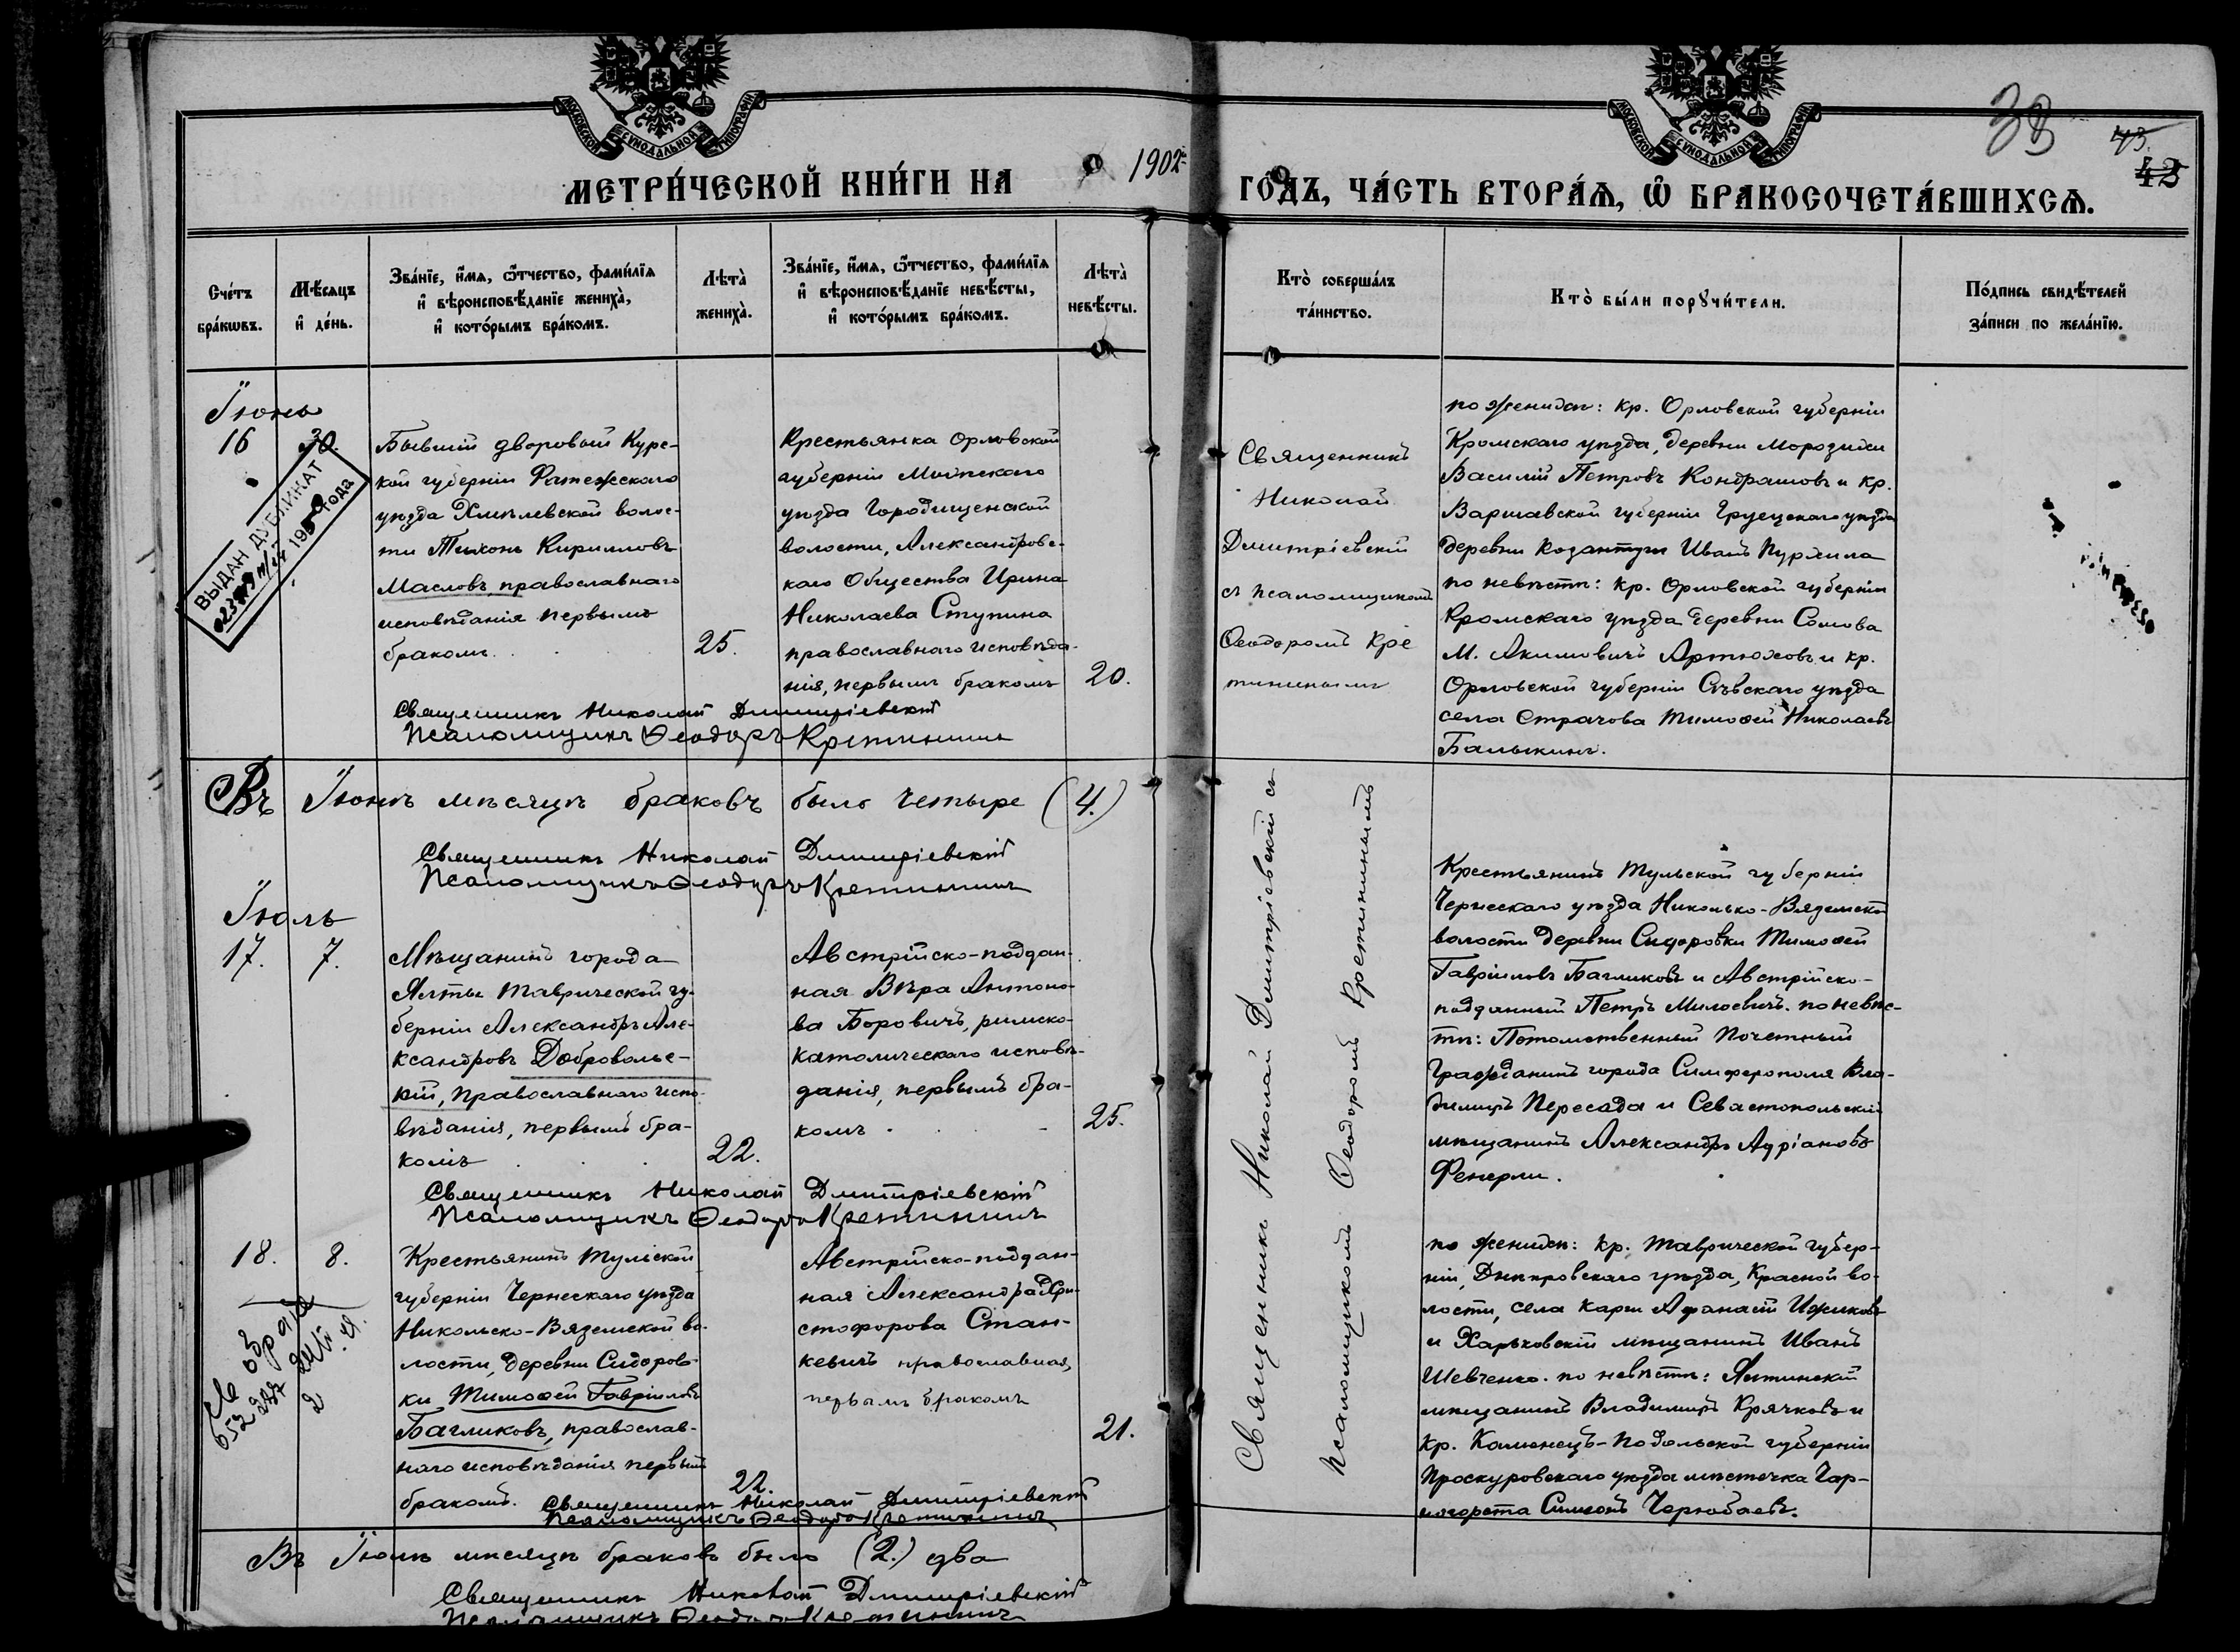 МОСКОВСКОЙ СѴНОДАЛЬНОЙ ТИПОГРАФІИ
МОСКОВСКОЙ СѴНОДАЛЬНОЙ ТИПОГРАФІИ
38
43
МЕТРИ́ЧЕСКОЙ КНИ́ГИ НА 1902 ГО́ДЪ, ЧА́СТЬ ВТОРА́Ѧ, Ѽ БРАКОСОЧЕТА́ВШИХСѦ.
Счéтъ
брáкѡвъ.
Мѣ́сѧцъ
и҆ дéнь.
Звáнїе, и҆́мѧ, ѻ҆́тчество, фамѝлїѧ
и҆ вѣроисповѣ́данїе женихà,
и҆ котóрымъ брáкомъ.
Лѣтà
женихà.
Звáнїе, и҆́мѧ, ѻ҆́тчество, фамѝлїѧ
и҆ вѣроисповѣ́данїе невѣ́сты,
и҆ котóрымъ брáкомъ.
Лѣтà
невѣ́сты.
Ктò совершáлъ
тáинство.
Ктò бы́ли порꙋчи́тели.
Пóдпись свидѣ́телей
зáписи по желáнїю.
Іюнь
16
30.
ВЫДАН ДУБЛИКАТ
195 года
Бывшій дворовый Курс-
кой губерніи Фатежскаго
уѣзда Хмѣлевской волос-
ти Тихонъ Кирилловъ
Масловъ, православнаго
исповѣданія первымъ
бракомъ.
25.
Крестьянка Орловской
губерніи Мценскаго
уѣзда Городищенской
волости, Александровс-
каго Общества Ирина
Николаева Ступина
православнаго исповѣда-
нія, первымъ бракомъ
20.
Священникъ
Николай
Дмитріевскій
съ псаломщикомъ
Ѳеодоромъ Кре
тининымъ
по женихѣ: кр. Орловской губерніи
Кромскаго уѣзда, деревни
Василій Петровъ Кондрашовъ и кр.
Варшавской губерніи Груецкаго уѣзда
деревни Иванъ
по невѣстѣ: кр. Орловской губерніи
Кромскаго уѣзда деревни Сомова
М. Акимовичъ Артюховъ и кр.
Орловской губерніи Сѣвскаго уѣзда
села Страчова Тимоѳей Николаевъ
Балыкинъ.
Священникъ Николай Дмитріевскій
Псаломщикъ Ѳеодоръ Кретининъ
Въ Іюнѣ мѣсяцѣ браковъ было четыре (4.)
Священникъ Николай Дмитріевскій
Псаломщикъ Ѳеодоръ Кретининъ
Іюль
17.
7.
Мѣщанинъ города
Ялты Таврической гу-
берніи Александръ Але-
ксандровъ Добровольс-
кій, православнаго испо-
вѣданія, первымъ бра-
комъ
22.
Австрійско-поддан-
ная Вѣра Антоно-
ва Боровичъ, римско-
католическаго исповѣ-
данія, первымъ бра-
комъ
25.
Священникъ Николай Дмитріевскій съ
Псаломщикомъ Ѳеодоромъ Кретининымъ
Крестьянинъ Тульской губерніи
Чернскаго уѣзда Никольско-Вяземской
волости деревни Сидоровки Тимоѳей
Гавріиловъ Багликовъ и Австрійско-
подданный Петръ Милоевичъ. по невѣс-
тѣ: Потомственный Почетный
Гражданинъ города Симферополя Вла-
димиръ Пересада и Севастопольскій
мѣщанинъ Александръ Адріановъ
Фенерли.
Священникъ Николай Дмитріевскій
Псаломщикъ Ѳеодоръ Кретининъ
18.
8.
Крестьянинъ Тульской
губерніи Чернскаго уѣзда
Никольско-Вяземской во-
лости, деревни Сидоров-
ки Тимоѳей Гавріиловъ
Багликовъ, православ-
наго исповѣданія первымъ
бракомъ.
22.
Австрійско-поддан-
ная Александра Хри-
стофорова Стан-
кевичъ православная,
первымъ бракомъ
21.
по женихѣ: кр. Таврической губер-
ніи, Днѣпровскаго уѣзда, Красной во-
лости, села Карги Аѳанасій
и Харьковскій мѣщанинъ Иванъ
Шевченко. по невѣстѣ: Ялтинскій
мѣщанинъ Владимиръ Крячковъ и
кр. Каменецъ-Подольской губерніи
Проскуровскаго уѣзда мѣстечка Чар-
Симеонъ
Священникъ Николай Дмитріевскій
Псаломщикъ Ѳеодоръ Кретининъ
Въ Іюлѣ мѣсяцѣ браковъ было (2.) два
Священникъ Николай Дмитріевскій
Псаломщикъ Ѳеодоръ Кретининъ